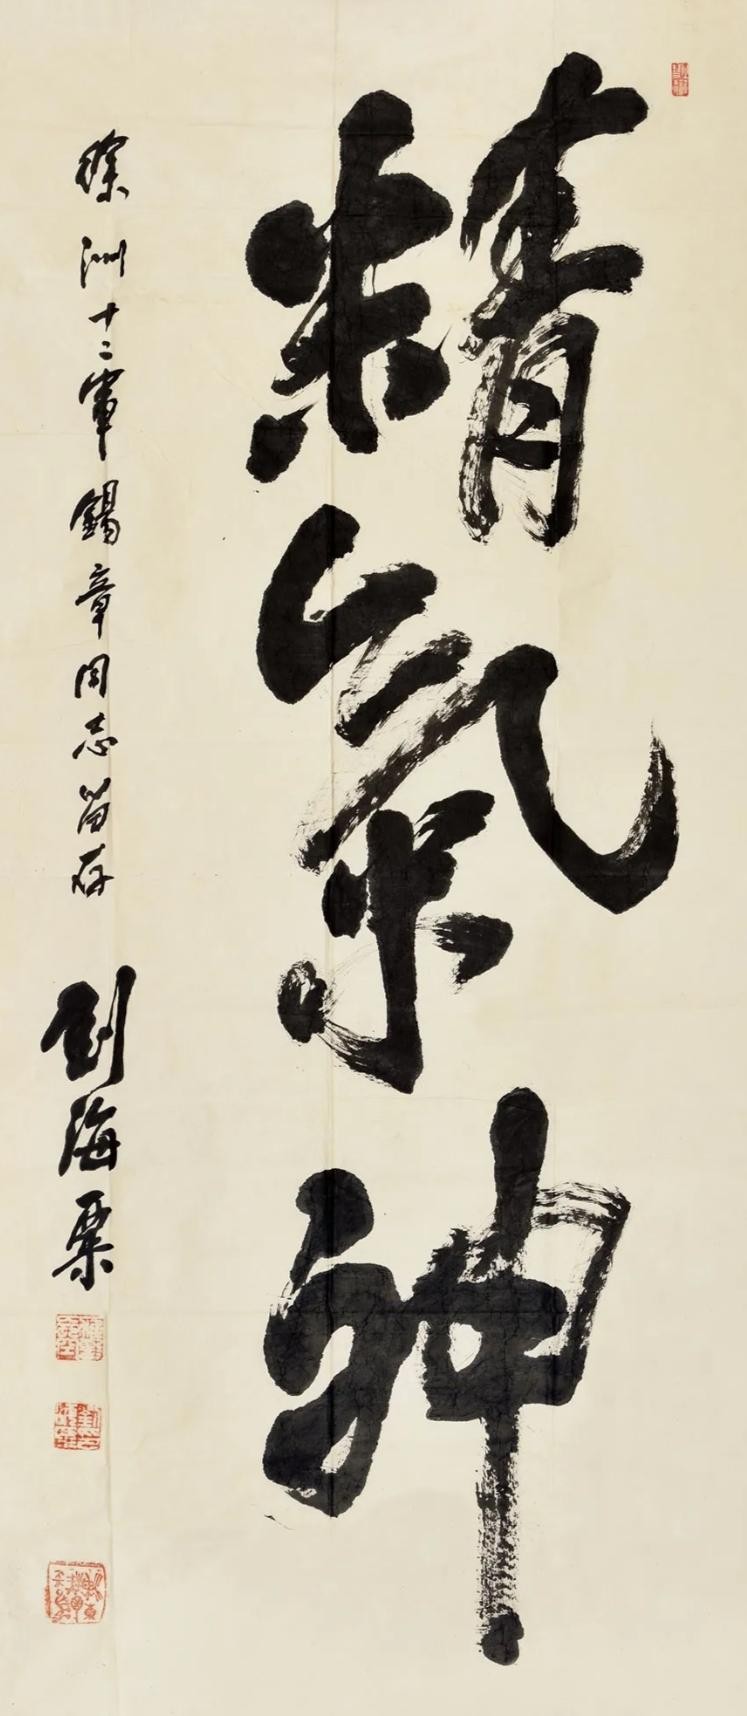 精氣神
徐州十二军錫章同志留存
劉海粟